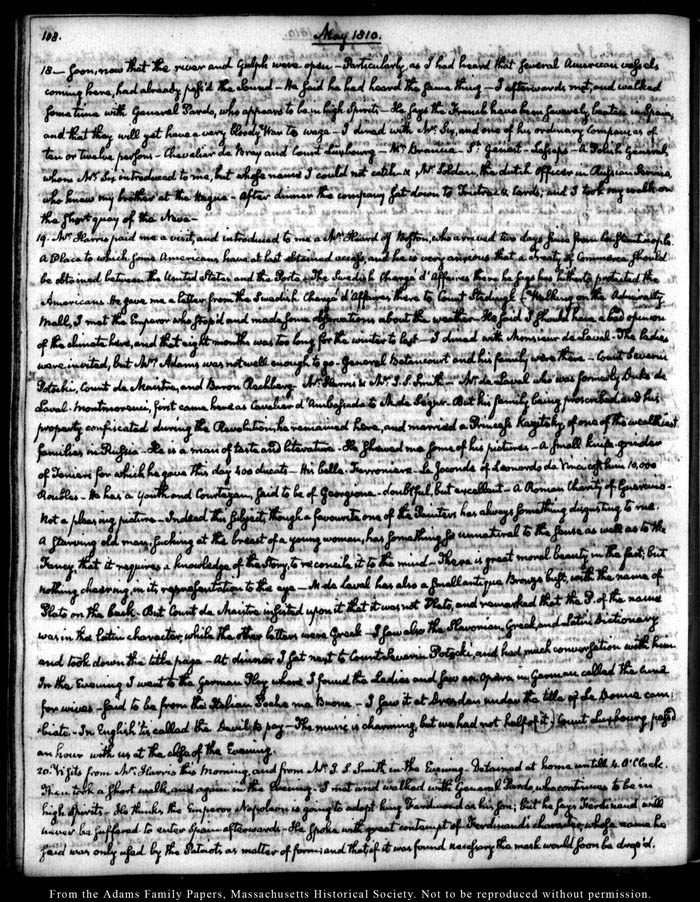 108.
May 1810.
18 — soon, now that the river and Gulph were open — Particularly, as I had heard that several American vessels
coming here, had already pass'd the Sound — He said he had heard the same thing — I afterwards met, and walked
sometime with General Pardo, who appears to be in high Spirits — He says the French have been severely beaten in Spain,
and that they will yet have a very bloody War to wage — I dined with Mr. Six, and one of his ordinary companies of
ten or twelve persons — Chevalier de Bray and Count Luxbourg — Mr. Brancia — St. Genest — Lesseps — A Polish General,
whom Mr. Six introduced to me, but whose name I could not catch — & Mr. Soldan, the dutch Officer in Russian Service,
who knew my brother at the Hague — After dinner the company sat down to cards; and I took my walk on
the short quay of the Neva —
19. Mr. Harris paid me a visit, and introduced to me a Mr. of Boston, who arrived two days since from Constantinople.
A Place to which some Americans have at last obtained access, and he is very anxious that a Treaty of Commerce should
be obtained between the United States and the Porte. The Swedish Chargé d'Affaires there he says has hitherto protected the
Americans. He gave me a letter from the Swedish Chargé d'Affaires there to Count Stedingk — Walking on the Admiralty
Mall, I met the Emperor who stop'd and made some observations about the weather — He said I should have a bad opinion
of the climate here, and that eight months was too long for the winter to last — I dined with Monsieur de Laval — The ladies
were invited, but Mrs. Adams was not well enough to go — General Betancourt and his family were there — Count Severin
Potocki, Count de Maistre, and Baron Blachberg — Mr. Harris & Mr. J. S. Smith — Mr. de Laval who was formerly Duke de
Laval-Montmorenci, first came here as Cavalier d'Ambassade to M. de Segur — But his family being proscribed, and his
property confiscated during the Revolution, he remained here, and married a Princess Kozitsky, of one of the wealthiest
families in Russia — He is a man of taste and literature — He shewed me some of his pictures — A small knife-grinder
of Teniers for which he gave this day 400 ducats — His belle Ferroniere — La Joconde of Leonardo da Vinci cost him 10,000
Roubles — He has a Youth and Courtezan, said to be of Georgione — doubtful, but excellent — A Roman Charity of Guercino —
Not a pleasing picture — Indeed this subject, though a favourite one of the Painters has always something disgusting to me.
A starving old man, sucking at the breast of a young woman, has something so unnatural to the sense as well as to the
Fancy, that it requires a knowledge of the Story, to reconcile it to the mind — There is great moral beauty in the fact; but
nothing chearing, in its representation to the eye — M. de Laval has also a small antique Bronze bust, with the name of
Plato on the back — But Count de Maistre insisted upon it that it was not Plato, and remarked that the P. of the name
was in the Latin character, while the other letters were Greek — I saw also the Slavonian, Greek, and Latin Dictionary
and took down the title page — At dinner I sat next to Count Severin Potocki, and had much conversation with him
In the Evening I went to the German Play where I found the Ladies and saw an Opera in German called the
for wives — said to be from the Italian Poche ma Buone — I saw it at Dresden under the title of Le Donne cam-
-biate — In English 'tis called the Devil to pay — The music is charming, but we had not half of it. Count Luxbourg pass'd
an hour with us at the close of the Evening.
20. Visits from Mr. Harris this Morning, and from Mr. J. S. Smith in the Evening — Detained at home untill 4. O'Clock.
Then took a short walk, and again in the Evening — I met and walked with General Pardo, who continues to be in
high Spirits — He thinks the Emperor Napoleon is going to adopt king Ferdinand as his son; but he says Ferdinand will
never be suffered to enter Spain afterwards — He spoke with great contempt of Ferdinand's character, whose name he
said was only used by the Patriots as matter of form; and that, if it was found necessary the mask would soon be drop'd.
From the Adams Family Papers, Massachusetts Historical Society. Not to be reproduced without permission.